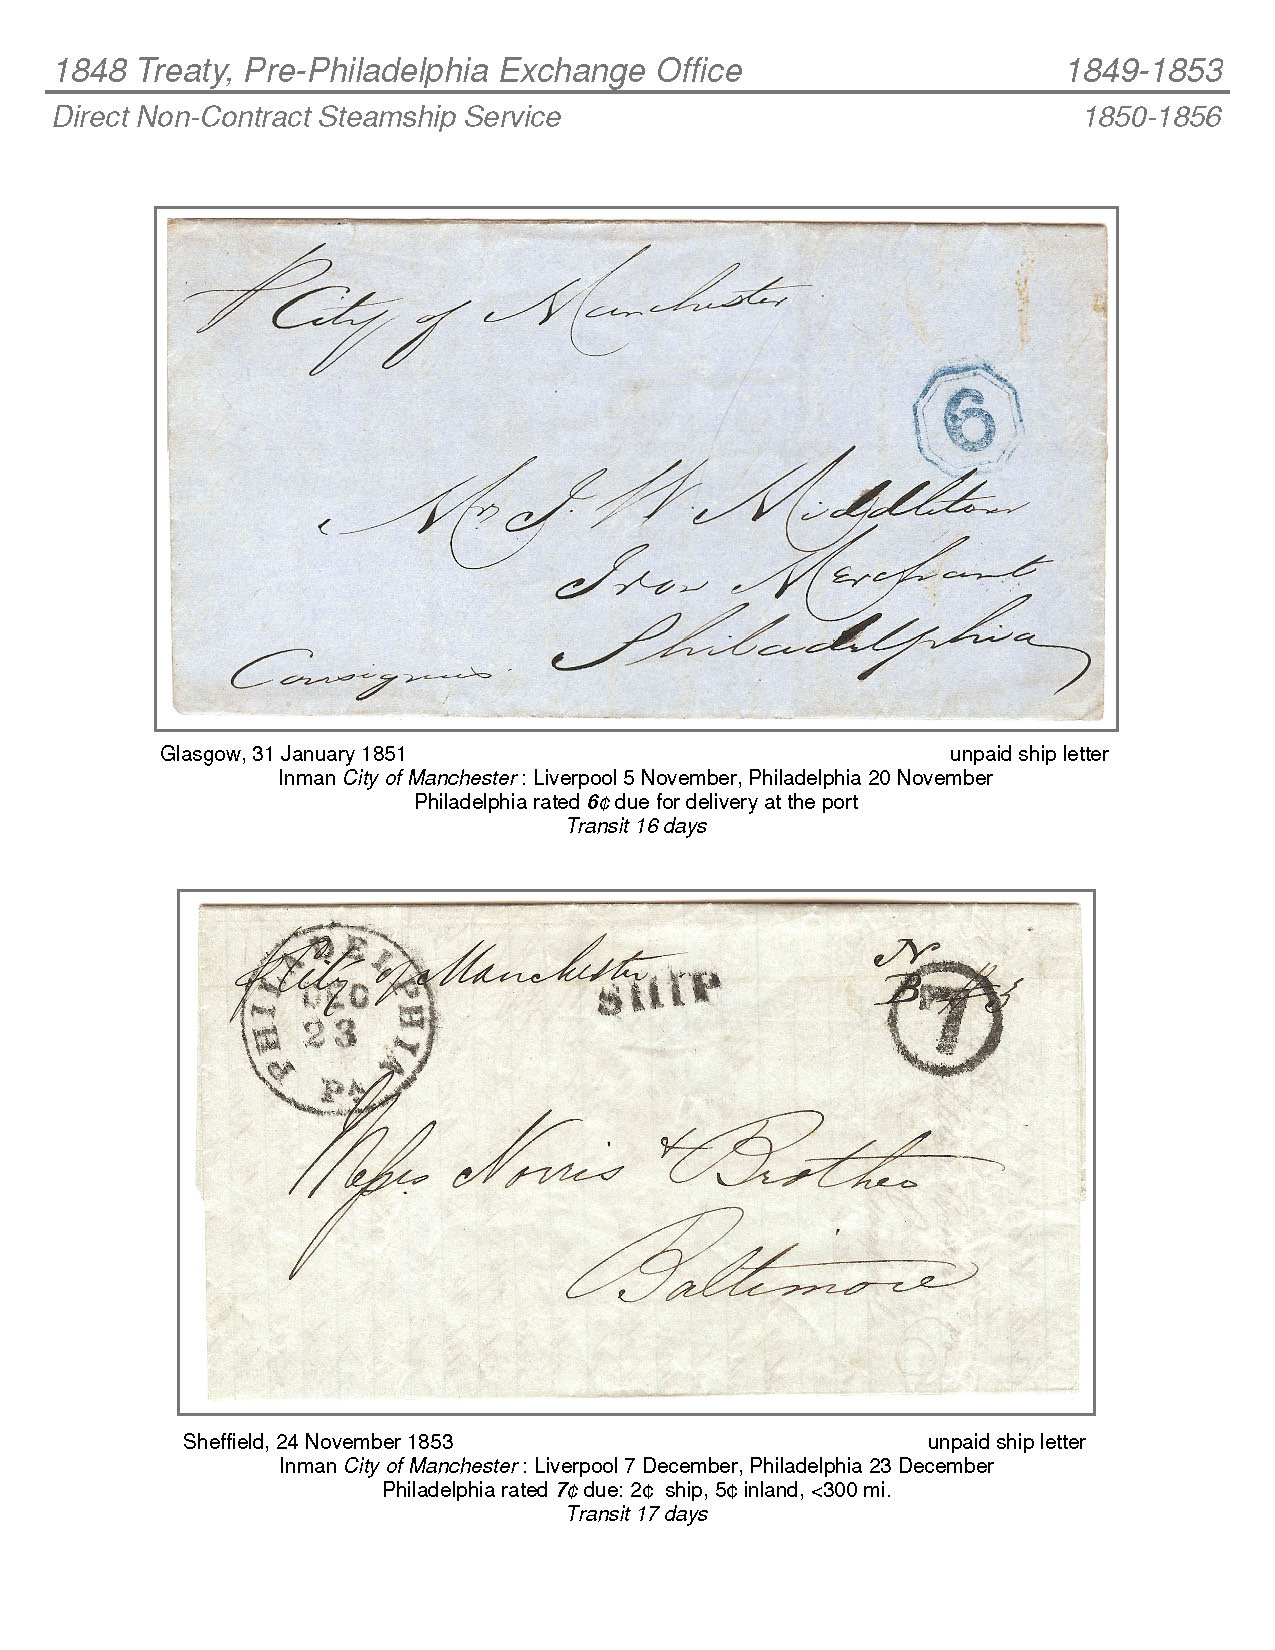 1848 Treaty, Pre-Philadelphia Exchange Office 1849-1853
Direct Non-Contract Steamship Service 1850-1856
P City of Manchester
6
Mr. J. W. Middleton
Iron Merchant
Philadelphia
Consignees
Glasgow, 31 January 1851 unpaid ship letter
Inman City of Manchester : Liverpool 5 November, Philadelphia 20 November
Philadelphia rated 6¢ due for delivery at the port
Transit 16 days
p City of Manchester
SHIP
N
B #3
7
PHILADELPHIA
DEC
23
PA
Messrs Norris & Brother
Baltimore
Sheffield, 24 November 1853 unpaid ship letter
Inman City of Manchester : Liverpool 7 December, Philadelphia 23 December
Philadelphia rated 7¢ due: 2¢ ship, 5¢ inland, <300 mi.
Transit 17 days